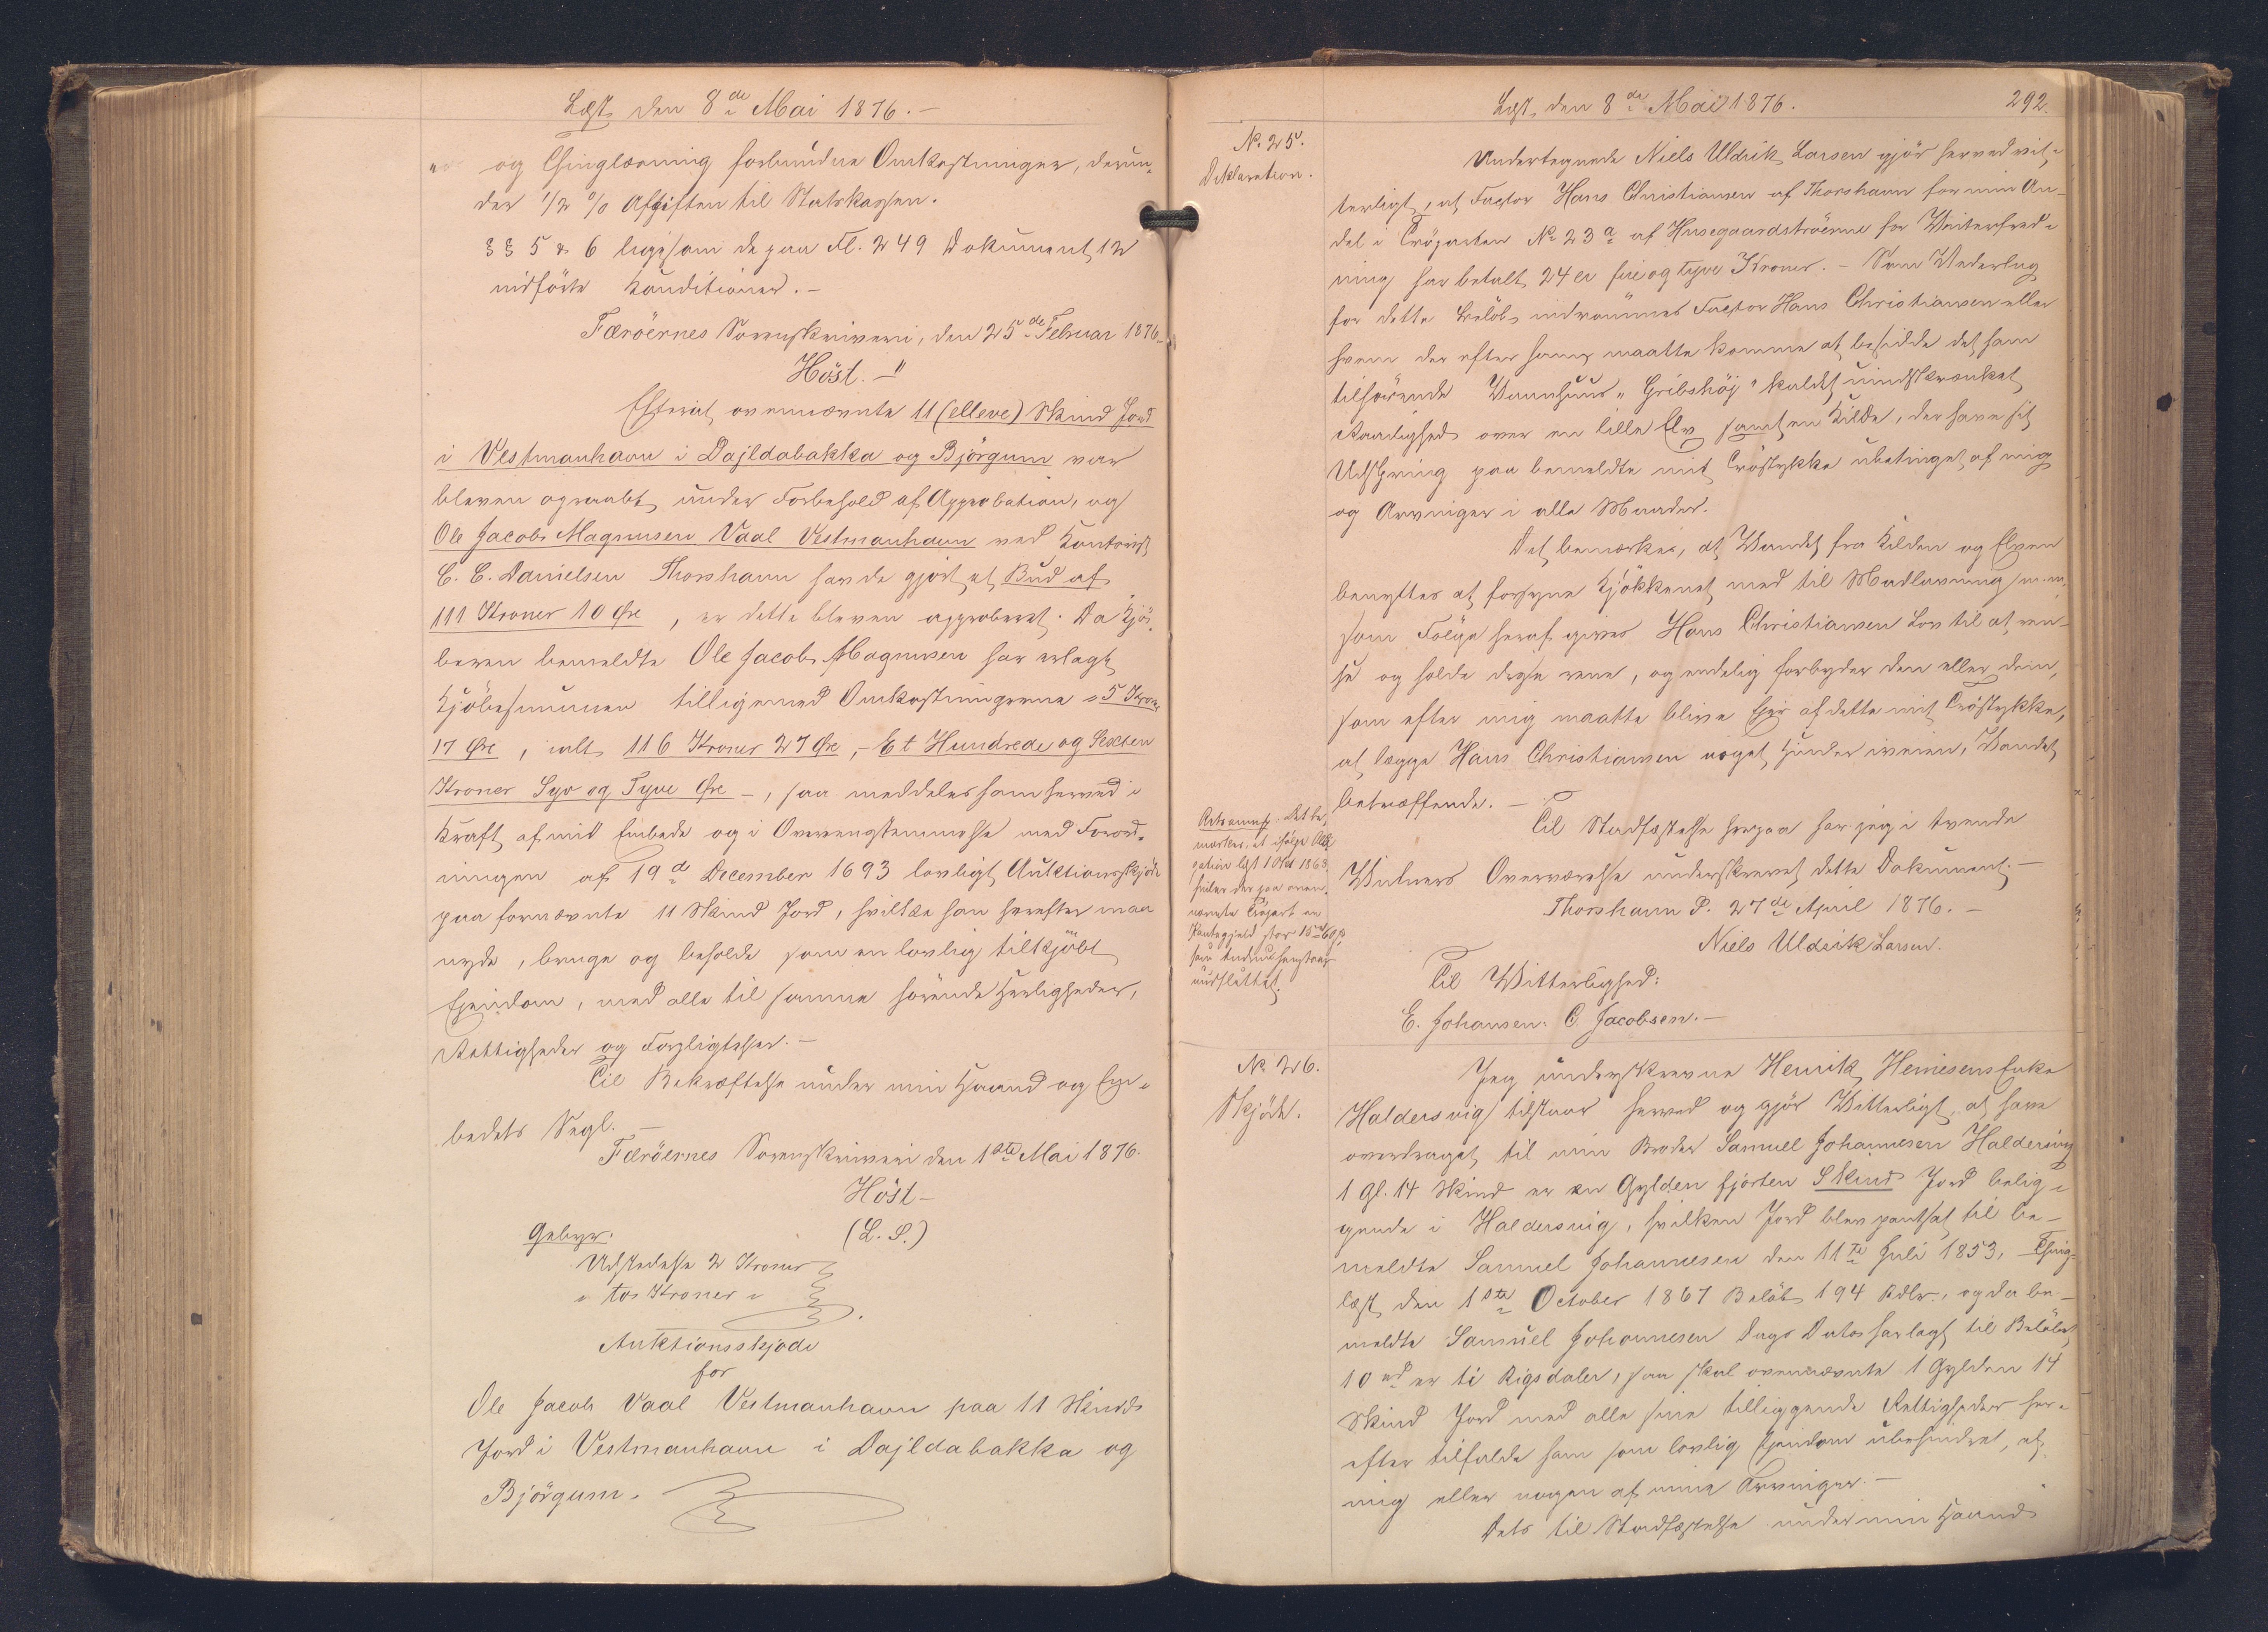 Læst den 8de Mai 1876.-
og Thinglæsning forbundne Omkostninger, derun-
der 1/2 % Afgiften til Statskassen.
§§ 5 & 6 ligesom de paa Fl. 249 Dokument 12
indførte Konditioner.-
Færöernes Sorenskriveri, den 25de Februar 1876
Höst.-"
Efterat ovennævnte 11 (elleve) Skind Jord
i Vestmanhavn i Dajldabakka og Björgum var
bleven opraabt under Forbehold af Approbation, og
Ole Jacob Magnusen Vaal Vestmanhavn ved Kontorist
C. C. Danielsen Thorshavn havde gjort et Bud af
111 Kroner 10 Øre, er dette bleven approberet. Da Kjø-
beren bemeldte Ole Jacob Magnusen har erlagt
Kjöbesummen tilligemed Omkostningerne 5 Kron
17 Øre, ialt 116 Kroner 27 Øre,- Et Hundrede og Sexten
Kroner Syv og Tyve Øre -, saa meddeles ham herved i
Kraft af mit Embede og i Overensstemmelse med Forord-
ningen af 19de December 1693 lovligt Auktionsskjöde
paa fornævnte 11 Skind Jord, hvilke han herefter maa
nyde, bruge og beholde som en lovlig tilkjöbt
Ejendom, med alle til samme hörende Herligheder,
Rettigheder og Forpligtelser.-
Til Bekræftelse under min Haand og Em-
bedets Segl.-
Færöernes Sorenskriveri den 1ste Mai 1876.
Höst-
(L. S.)
Gebyr.
Udstedelse 2 Kroner
" to Kroner "
Auktionsskjöde
for
Ole Jacob Vaal Vestmanhavn paa 11 Skinds
Jord i Vestmanhavn i Dajldabakka og
Björgum.
Læst, den 8de Mai 1876.
292.
No 25.
Deklaration.
Undertegnede Niels Uldrik Larsen gjör herved vit-
terligt, at Factor Hans Christiansen af Thorshavn for min An-
del i Tröparten No 23a af Husegaardströerne for
har betalt 24 er fire og tyve Kroner.- Som Vederlag
for dette Belöb indrömmes Factor Hans Christiansen eller
hvem der efter ham maatte komme at besidde det ham
tilhörende Vaanhuus "Gribshöj" kaldet uindskrænket
Raadighed over en lille Elv samt en Kilde, der have sit
Udspring paa bemeldte mit Tröstykke ubetinget af mig
og Arvinger i alle Maader.
Det bemærkes, at Vandet fra Kilden og Elven
benyttes at forsyne Kjökkenet med til Madlavning m.m.
som Fölge heraf gives Hans Christiansen Lov til at ren-
se og holde disse rene, og endelig forbyder den eller dem,
som efter mig maatte blive Ejer af dette mit Tröstykke,
at lægge Hans Christiansen noget Hinder iveien, Vandet
betræffende.-
Til Stadfæstelse herpaa har jeg i tvende
Vidners Overværelse underskrevet dette Dokument.-
Thorshavn D. 27de April 1876.-
Niels Uldrik Larsen.
Til Vitterlighed:
E. Johansen. C. Jacobsen.-
Det be-
mærkes, at ifølge Obli-
gation læst 1 Okt 1863
hviler der paa oven-
nævnte Tröpart en
Pantegjeld stor 15
No 26.
Skjöde.
Jeg underskrevne Henrik Heinesens Enke
Haldersvig tilstaar herved og gjör Vitterligt, at have
overdraget til min Broder Samuel Johannesen Haldersvig
1 Gl. 14 Skind er en Gylden fjorten Skind Jord belig-
gende i Haldersvig, hvilken Jord blev pantsat til be-
meldte Samuel Johannesen den 11te Juli 1853, Thing-
læst den 1ste October 1867 Belöb 194 Rdlr., og da be-
meldte Samuel Johannesen Dags Dato har lagt til Belöbet
10 rd er ti Rigsdaler, saa skal ovennævnte 1 Gylden 14
Skind Jord med alle sine tilliggende Rettigheder her-
efter tilfalde ham som lovlig Ejendom ubehindret, af
mig eller nogen af mine Arvinger.-
Dets til Stadfæstelse under min Haand